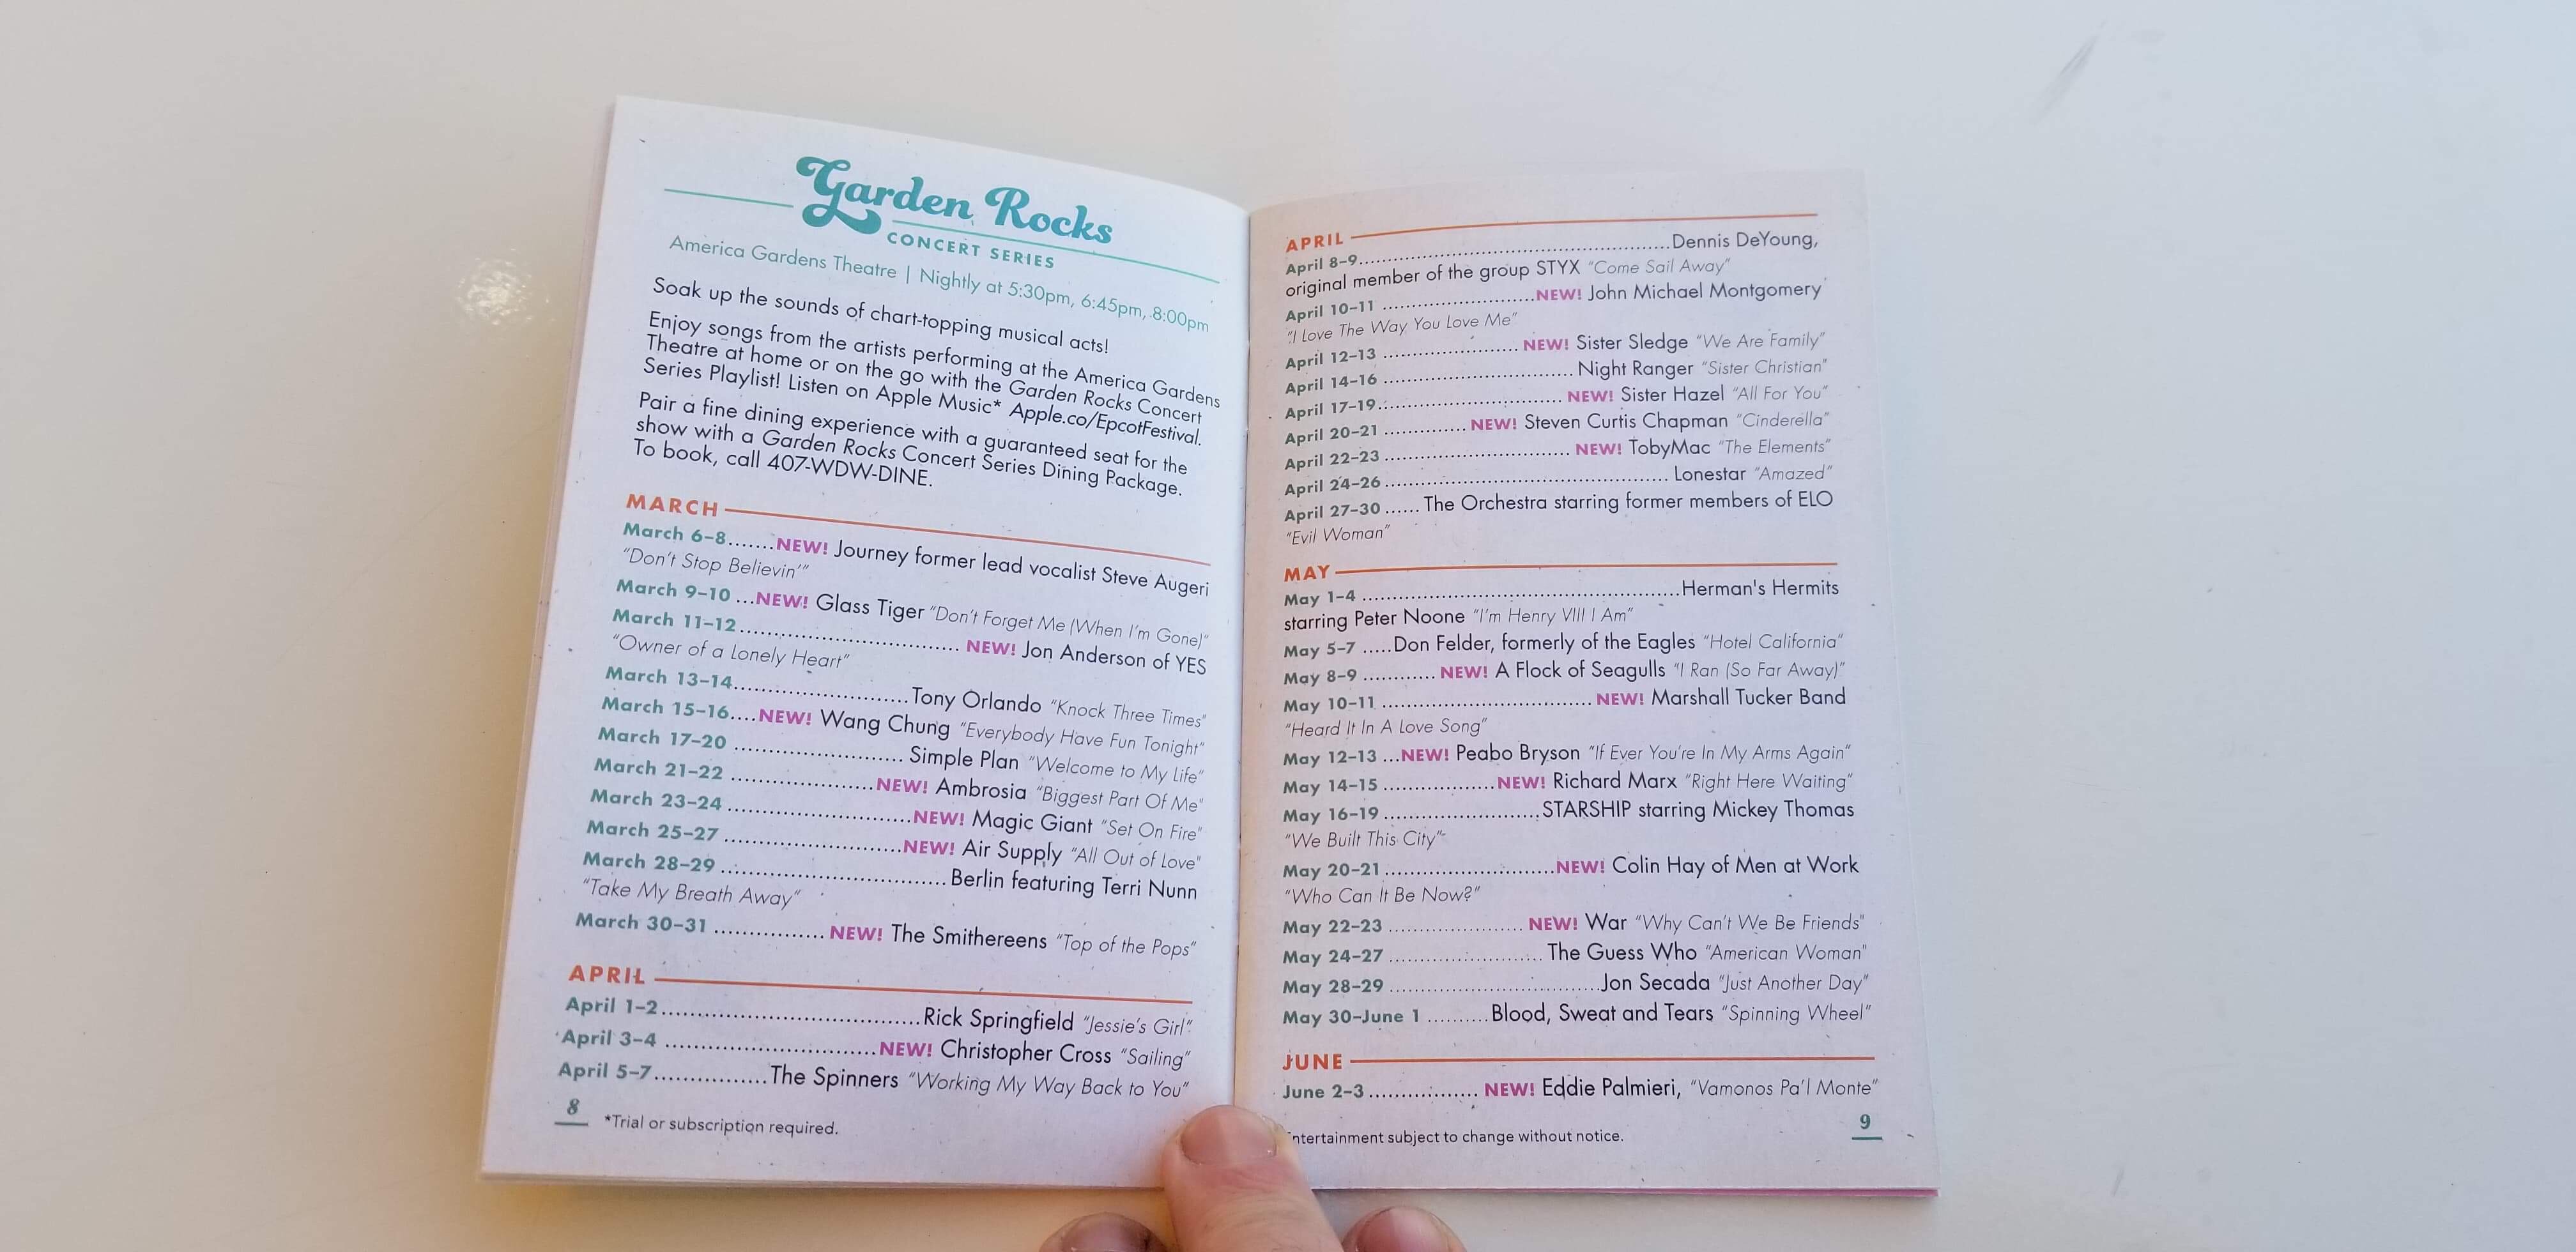 Garden Rocks
CONCERT SERIES
America Gardens Theatre | Nightly at 5:30pm, 6:45pm, 8:00pm
Soak up the sounds of chart-topping musical acts!
Enjoy songs from the artists performing at the America Gardens
Theatre at home or on the go with the Garden Rocks Concert
Series Playlist! Listen on Apple Music* Apple.co/EpcotFestival.
Pair a fine dining experience with a guaranteed seat for the
show with a Garden Rocks Concert Series Dining Package.
To book, call 407-WDW-DINE.
MARCH
March 6–8.......NEW! Journey former lead vocalist Steve Augeri
“Don’t Stop Believin’”
March 9–10 ...NEW! Glass Tiger “Don’t Forget Me (When I’m Gone)”
March 11–12.................................. NEW! Jon Anderson of YES
“Owner of a Lonely Heart”
March 13–14...........................Tony Orlando “Knock Three Times”
March 15–16....NEW! Wang Chung “Everybody Have Fun Tonight”
March 17–20 .......................... Simple Plan “Welcome to My Life”
March 21–22 ......................NEW! Ambrosia “Biggest Part Of Me”
March 23–24 ............................NEW! Magic Giant “Set On Fire”
March 25–27 ...........................NEW! Air Supply “All Out of Love”
March 28–29 ...................................Berlin featuring Terri Nunn
“Take My Breath Away”
March 30–31 ................ NEW! The Smithereens “Top of the Pops”
APRIL
April 1–2.......................................Rick Springfield “Jessie’s Girl”
April 3–4 ................................NEW! Christopher Cross “Sailing”
April 5–7.................The Spinners “Working My Way Back to You”
8
*Trial or subscription required.
APRIL
April 8–9................................................Dennis DeYoung,
original member of the group STYX “Come Sail Away”
April 10–11 ........................NEW! John Michael Montgomery
“I Love The Way You Love Me”
April 12–13 ...................... NEW! Sister Sledge “We Are Family”
April 14–16 ..............................Night Ranger “Sister Christian”
April 17–19............................. NEW! Sister Hazel “All For You”
April 20–21 ............. NEW! Steven Curtis Chapman “Cinderella”
April 22–23 ............................. NEW! TobyMac “The Elements”
April 24–26 ............................................. Lonestar “Amazed”
April 27–30 ...... The Orchestra starring former members of ELO
“Evil Woman”
MAY
May 1–4 ....................................................Herman's Hermits
starring Peter Noone “I’m Henry VIII I Am”
May 5–7 .....Don Felder, formerly of the Eagles “Hotel California”
May 8–9 ............ NEW! A Flock of Seagulls “I Ran (So Far Away)”
May 10–11 .................................. NEW! Marshall Tucker Band
“Heard It In A Love Song”
May 12–13 ...NEW! Peabo Bryson “If Ever You’re In My Arms Again”
May 14–15 ..................NEW! Richard Marx “Right Here Waiting”
May 16–19 .........................STARSHIP starring Mickey Thomas
“We Built This City”
May 20–21 ...........................NEW! Colin Hay of Men at Work
“Who Can It Be Now?”
May 22–23 ...................... NEW! War “Why Can’t We Be Friends”
May 24–27 ......................... The Guess Who “American Woman”
May 28–29 ..................................Jon Secada “Just Another Day”
May 30–June 1 ..........Blood, Sweat and Tears “Spinning Wheel”
JUNE
June 2–3 ................. NEW! Eddie Palmieri, “Vamonos Pa’l Monte”
ntertainment subject to change without notice.
9